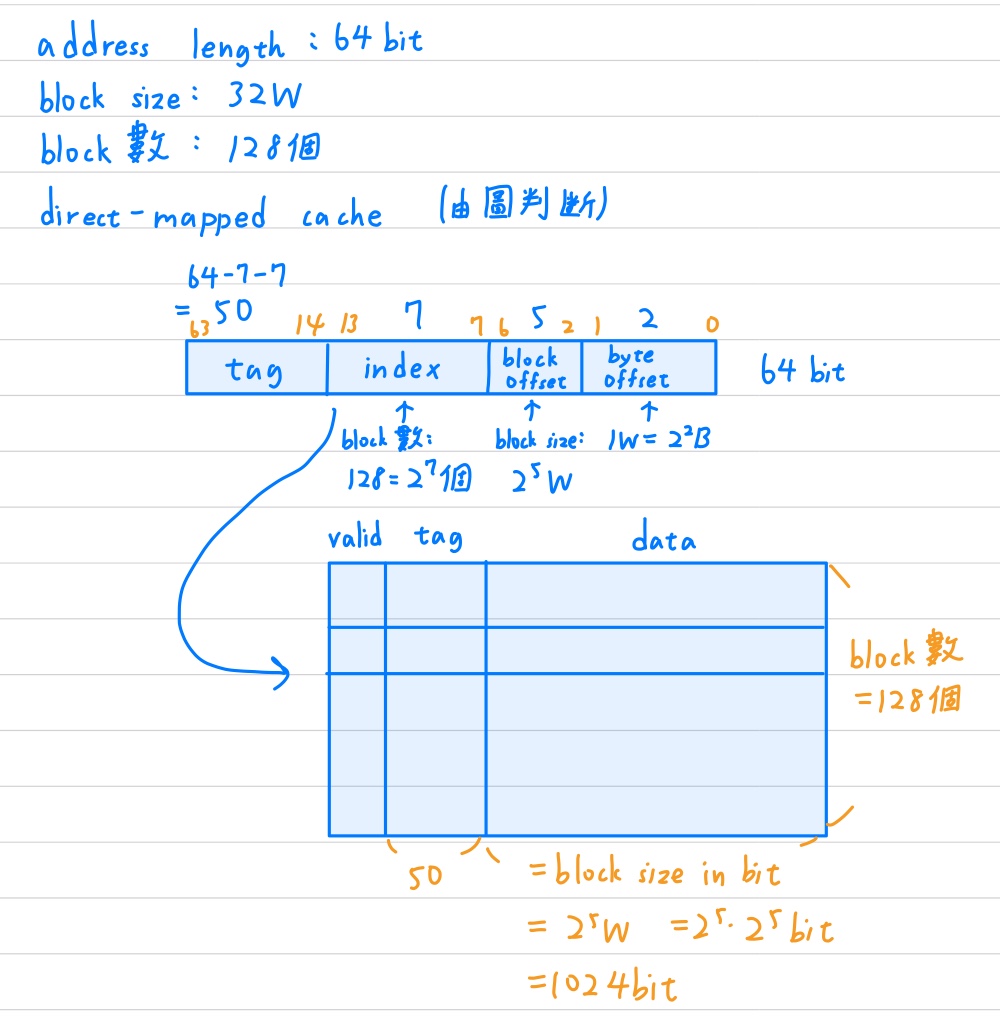 address length : 64 bit
block size : 32W
block 數 : 128個
direct-mapped cache (由圖判斷)
64-7-7
= 50
63 14 13 7 7 6 5 2 1 2 0
tag index block offset byte offset 64 bit
↑ ↑ ↑
block 數: block size: 1W = 2²B
128 = 2⁷個 2⁵W
valid tag data
block 數
= 128個
50 = block size in bit
= 2⁵W = 2⁵· 2⁵ bit
= 1024bit